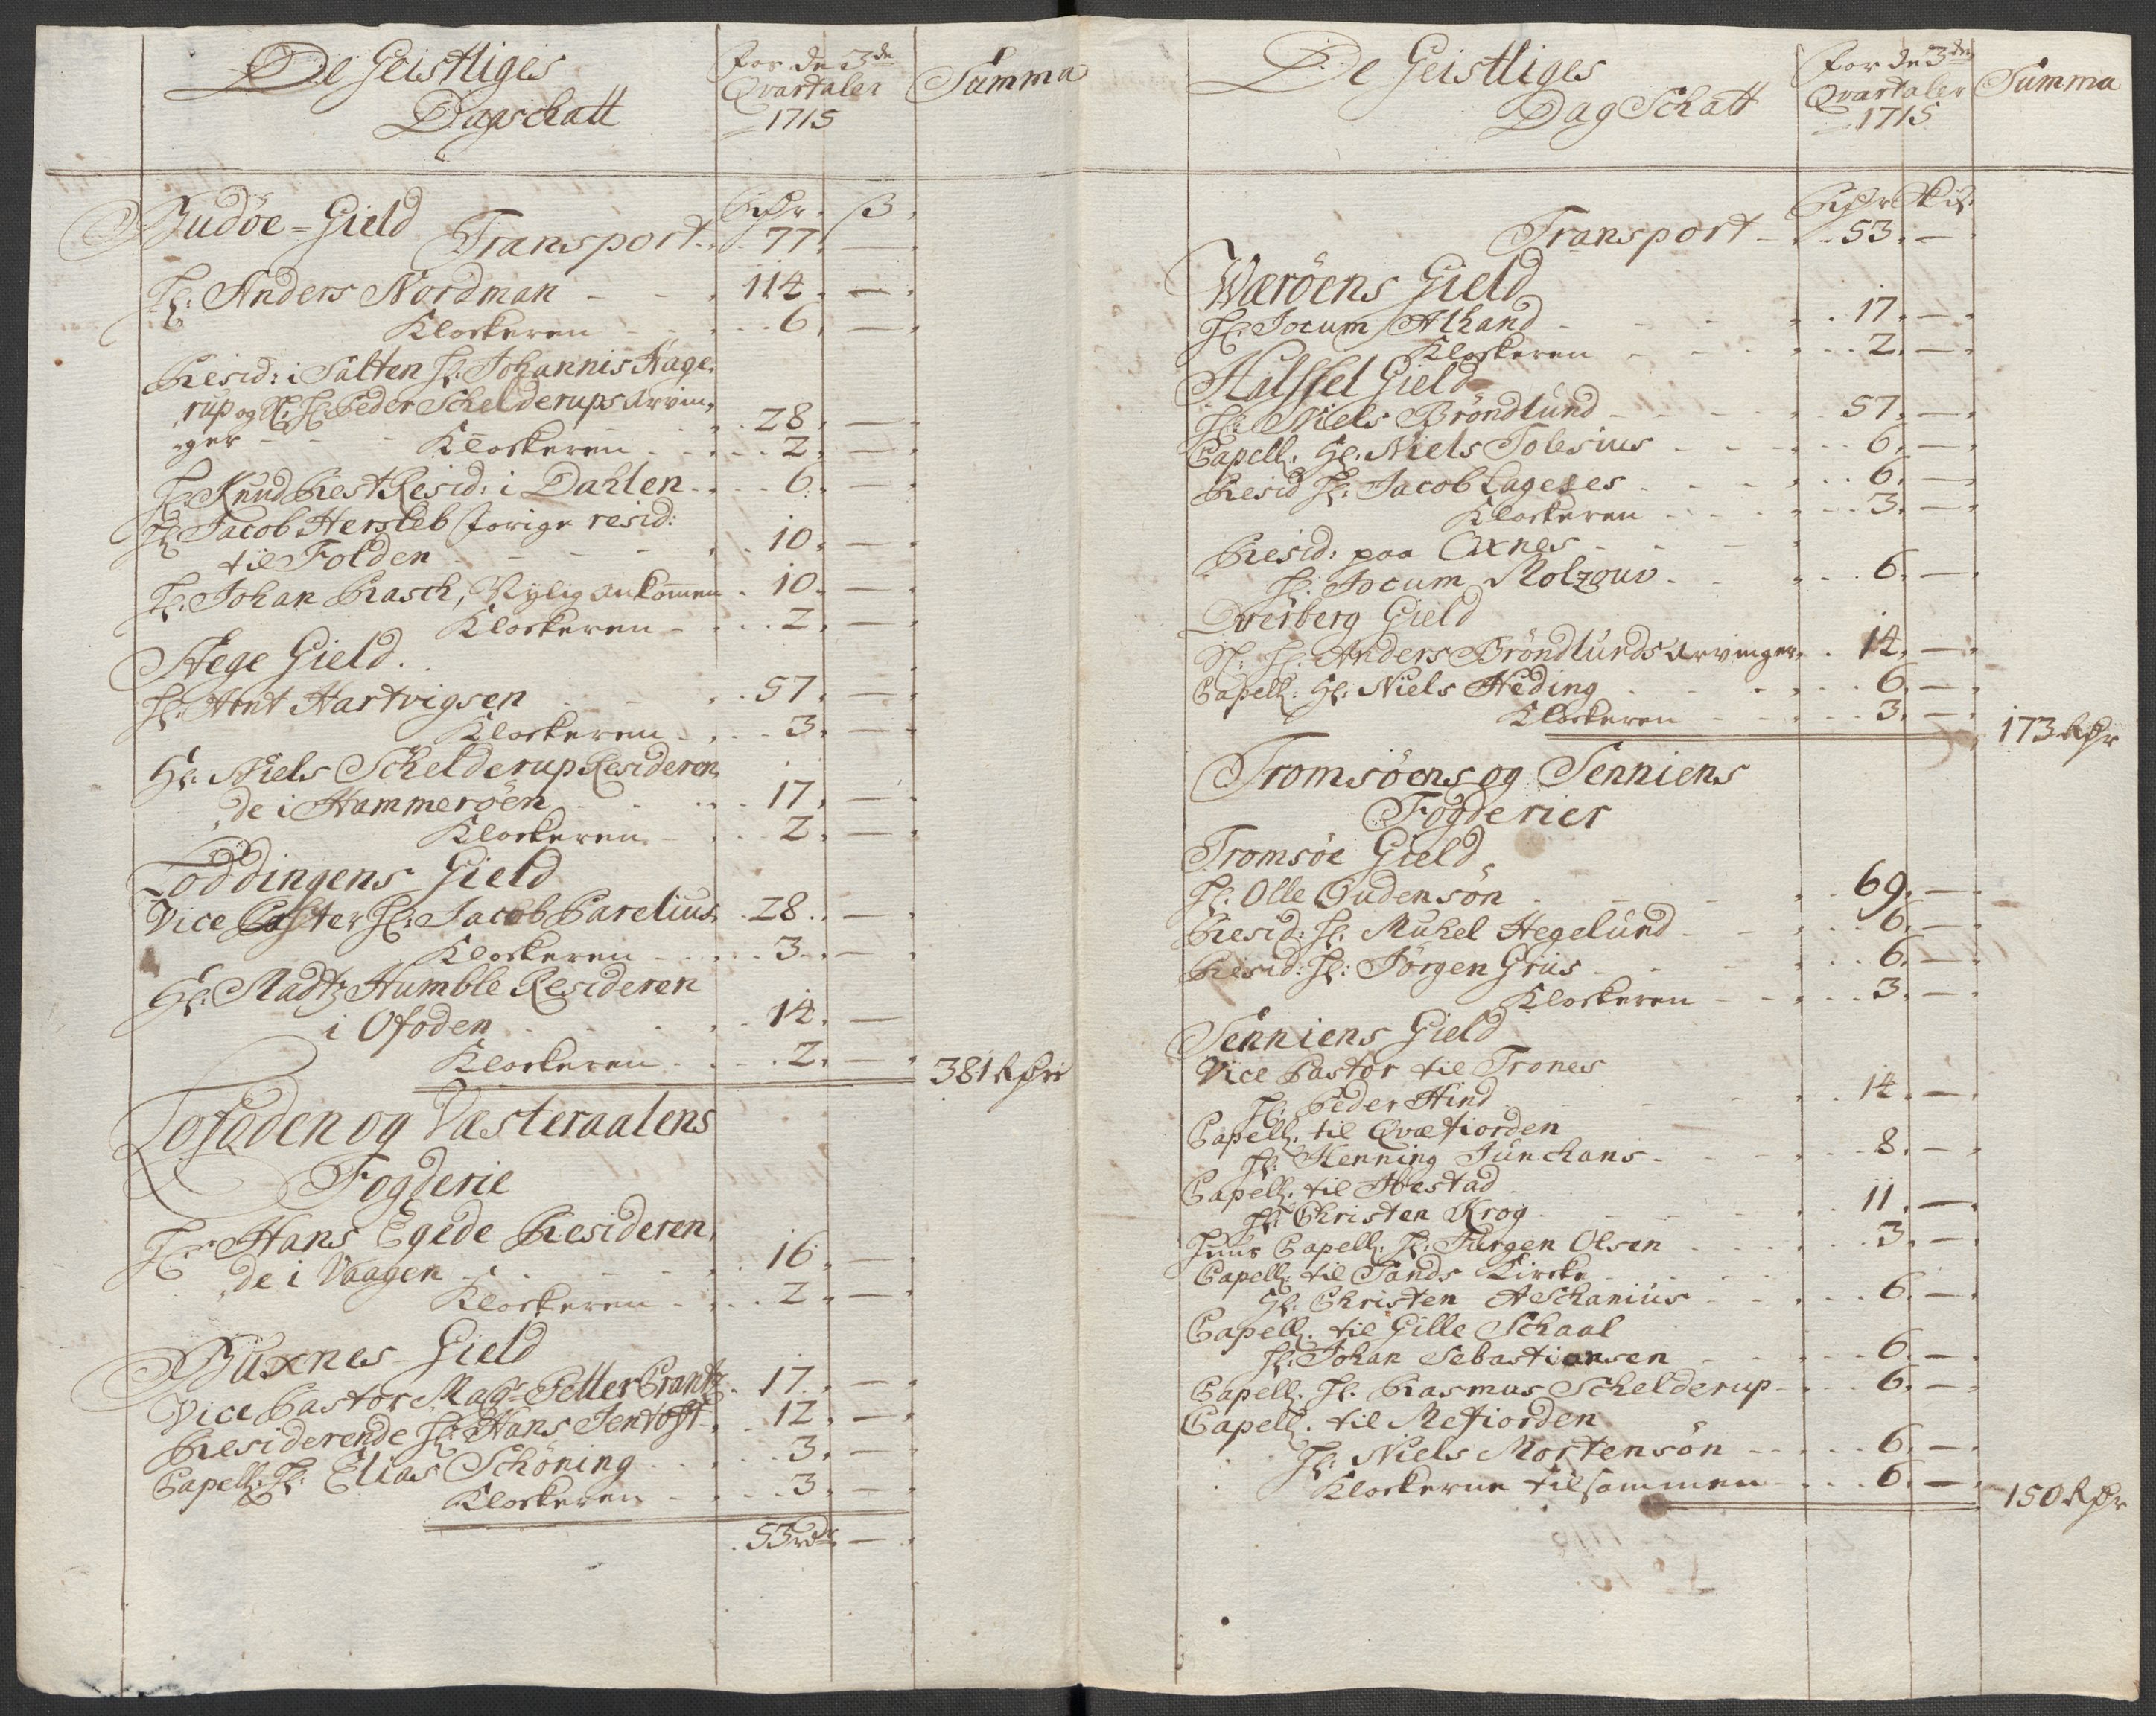 De Geistliges
Dagschatt
For de 3de
Qvartaler
1715
Summa
Rixdr. ß
Budøe=Gield
Transport 77. —
Hr: Anders Nordman 114. —
Klockeren 6. —
Resid: i Salten Hr: Johannis Hage-
rup og Sl: Hr: Peder Schelderups Arvin-
ger 28. —
Klockeren 2. —
Hr: Knud Rest Resid: i Dahlen 6. —
Hr: Jacob Hersleb forige resid:
til Folden 10. —
Hr: Johan Rasch, Nylig ankommen 10. —
Klockeren 2. —
Stege Gield.
Hr: Arnt Hartvigsen 57. —
Klockeren 3. —
Hr: Niels Schelderup Resideren
de i Hammerøen 17. —
Klockeren 2. —
Loddingens Gield
Vice Paster Hr: Jacob Parelius 28. —
Klockeren 3. —
Hr: Madtz Humble Resideren
i Ofoden 14. —
Klockeren 2. —
381 Rdr
Lofoden og Væsteraalens
Fogderie
Hr: Hans Egede Resideren,
de i Vaagen 16. —
Klockeren 2. —
Buxnes Gield
Vice Pastor Magr Petter Crantz 17. —
Residerende Hr: Hans Jentoft 12. —
Capell: Hr: Elias Schøning 3. —
Klockeren 3. —
53 rdr —
De Geistliges
Dag Schatt
For de 3de
Qvartaler
1715
Summa
Rixdr Skis
Transport 53. —
Wærøens Gield
Hr: Jocum Alhand 17. —
Klockeren 2. —
Halssel Gield
Hr: Niels Brøndlund 57. —
Capell: Hr: Niels Tolesius 6. —
Resid Hr: Jacob Lageses 6. —
Klockeren 3. —
Resid: paa Oxnes
Hr: Jocum Molzouv 6. —
Dverberg Gield
Sl: Hr: Anders Brøndlunds Arvinger 14. —
Capell: Hr: Niels Heding 6. —
Klockeren 3. —
173 Rdr
Tromsøens og Senniens
Fogderier
Tromsøe Gield
Hr: Olle Gudensøn 69. —
Resid: Hr: Mukel Hegelund 6. —
Resid: Hr: Jørgen Griis 6. —
Klockeren 3. —
Senniens Gield
Vice Pastor til Trones
Hr: Peder Hind 14. —
Capell: til Qvæfiorden
Hr: Henning Junchans 8. —
Capell: til Ibestad
Hr: Christen Krog 11. —
Capell: Hr: Jurgen Olsen 3. —
Capell: til Sands Kircke
Hr: Christen Aschanius 6. —
Capell: til Gille Schaal
Hr: Johan Sebastiansen 6. —
Capell: Hr: Rasmus Schelderup 6. —
Capell: til Mefiorden
Hr: Niels Mortensøn 6. —
Klockerne tilsammen 6. —
150 Rdr